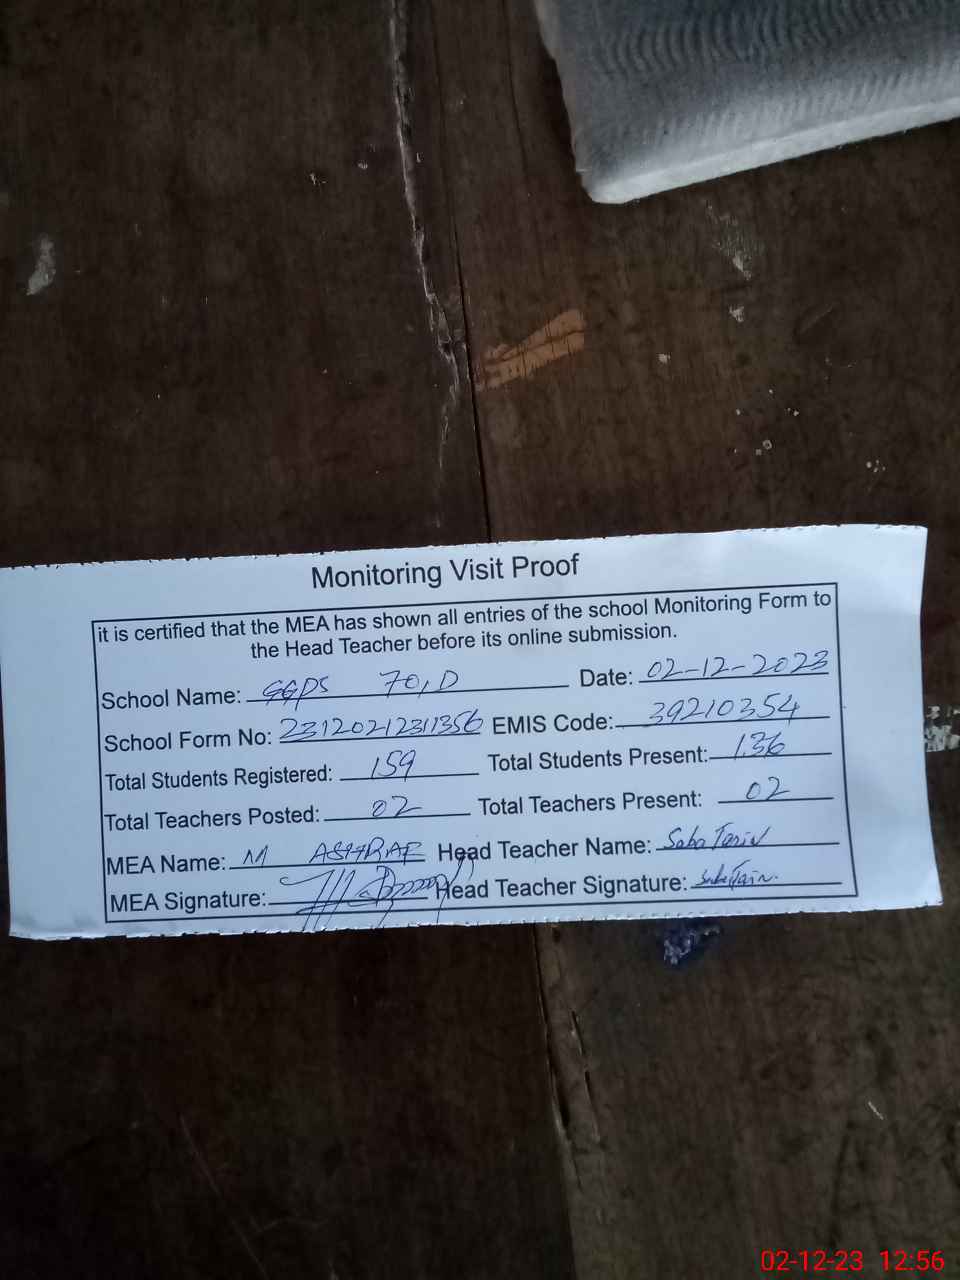 Monitoring Visit Proof
it is certified that the MEA has shown all entries of the school Monitoring Form to
the Head Teacher before its online submission.
School Name: GGPS 70,D Date: 02-12-2023
School Form No: 23120212311356 EMIS Code: 39210354
Total Students Registered: 159 Total Students Present: 136
Total Teachers Posted: 02 Total Teachers Present: 02
MEA Name: M ASHRAF Head Teacher Name: Saba Tarin
MEA Signature: Head Teacher Signature:
02-12-23 12:56